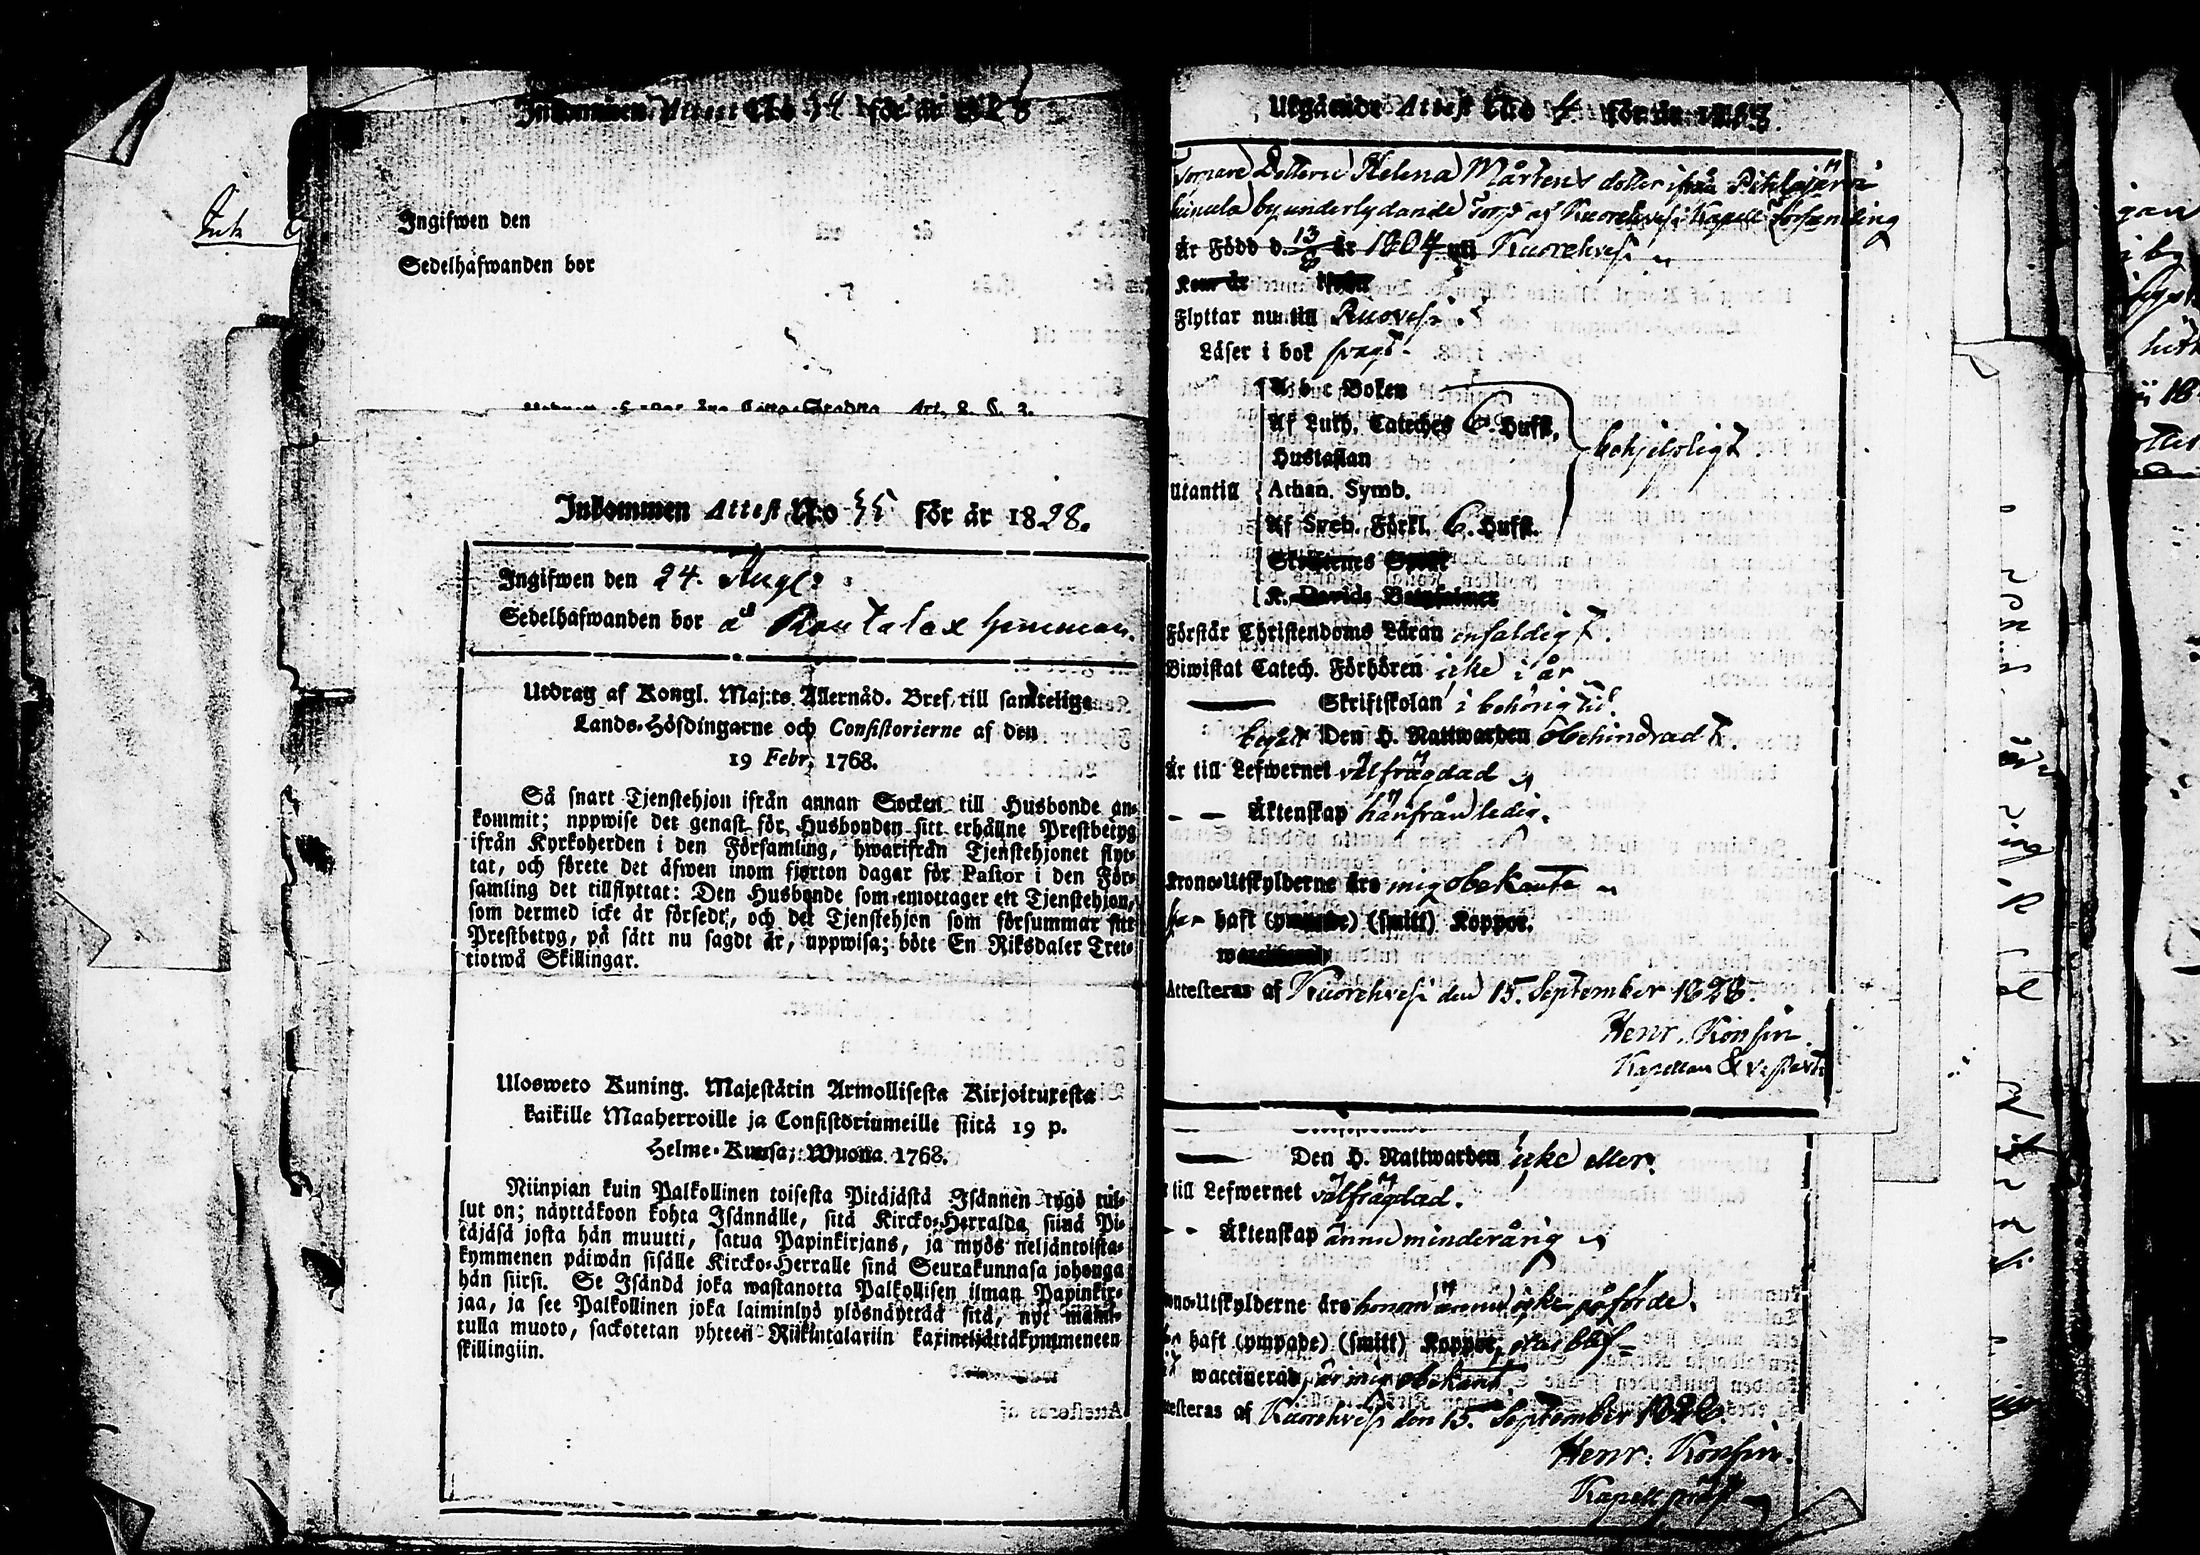 Inkommen Attest No 34 för år 1828
Ingifwen den
Sedelhafwanden bor
Art. 8. §. 3.
Inkommen Attest No 35 för år 1828.
Ingifwen den 24. Aug:
Sedelhafwanden bor å Rautalax hemman.
Utdrag af Kongl. Maj:ts Allernåd. Bref till samtelige
Lands-Höfdingarne och Consistorierne af den
19 Febr. 1768.
Så snart Tjenstehjon ifrån annan Socken till Husbonde an-
kommit; uppwise det genast för Husbonden sitt erhållne Prestbetyg
ifrån Kyrkoherden i den Församling, hwarifrån Tjenstehjonet flyt-
tat, och förete det äfwen inom fjorton dagar för Pastor i den För-
samling det tillflyttat: Den Husbonde som emottager ett Tjenstehjon,
som dermed icke är försedt, och det Tjenstehjon som försummar sitt
Prestbetyg, på sätt nu sagdt är, uppwisa; böte En Riksdaler Tret-
tiotwå Skillingar.
Ulosweto Kuning. Majestätin Armollisesta Kirjoituxesta
kaikille Maaherroille ja Consistoriumeille siitä 19 p.
Helme-Kuusa, Wuona 1768.
Niinpian kuin Palkollinen toisesta Pitäjästä Isännen tygö tul-
lut on; näyttäkoon kohta Isännälle, sitä Kircko-Herralda siinä Pi-
täjäsä josta hän muutti, saatua Papinkirjans, ja myös neljäntoista-
kymmenen päiwän sisälle Kircko-Herralle siinä Seurakunnasa johonga
hän siirsi. Se Isändä joka wastanotta Palkollisen ilman Papinkir-
jaa, ja see Palkollinen joka laiminlyö ylösnäyttää sitä, nyt maini-
tulla muoto, sackotetan yhteen Riikintalariin kaxineljättäkymmeneen
skillingiin.
Attesteras af
Utgående Attest No 4. för år 1828.
Torpare Dottern Helena Mårtens dotter ifrån Pihlajärvi
by underlydande Torp af Kuorehvesi Kapell Församling
Är Född d. 13 år 1804 uti Kuorehvesi
Kom år
Flyttar nu till Ruovesi.
Läser i bok svagt.
A b c Boken
Af Luth. Cateches 6. Hufst.
Hustaflan
behjelpligt.
Utantill Athan. Symb.
Af Sveb. Förkl. 6. Hufst.
K. Davids Botpsalmer
Förstår Christendoms Läran enfaldigt.
Biwistat Catech. Förhören icke i år
Skriftskolan i behörig tid.
begått Den H. Nattwarden obehindradt.
Är till Lefwernet välfrägdad
Äktenskap härifrån ledig.
Krono-Utskylderne äro mig obekante
har haft (ympade) (smitt) Koppor.
Attesteras af Kuorehvesi den 15. September 1828.
Henr. Konsin.
Kapellan & v. Past.
Den H. Nattwarden icke eller.
till Lefwernet välfrägdad.
Äktenskap ännu minderårig
Utskylderne äro honom ännu icke påförde.
haft (ympade) (smitt) Koppor,
waccinerad, är mig obekant.
Attesteras af Kuorehvesi den 15. September 1828.
Henr. Konsin.
Kapell präst